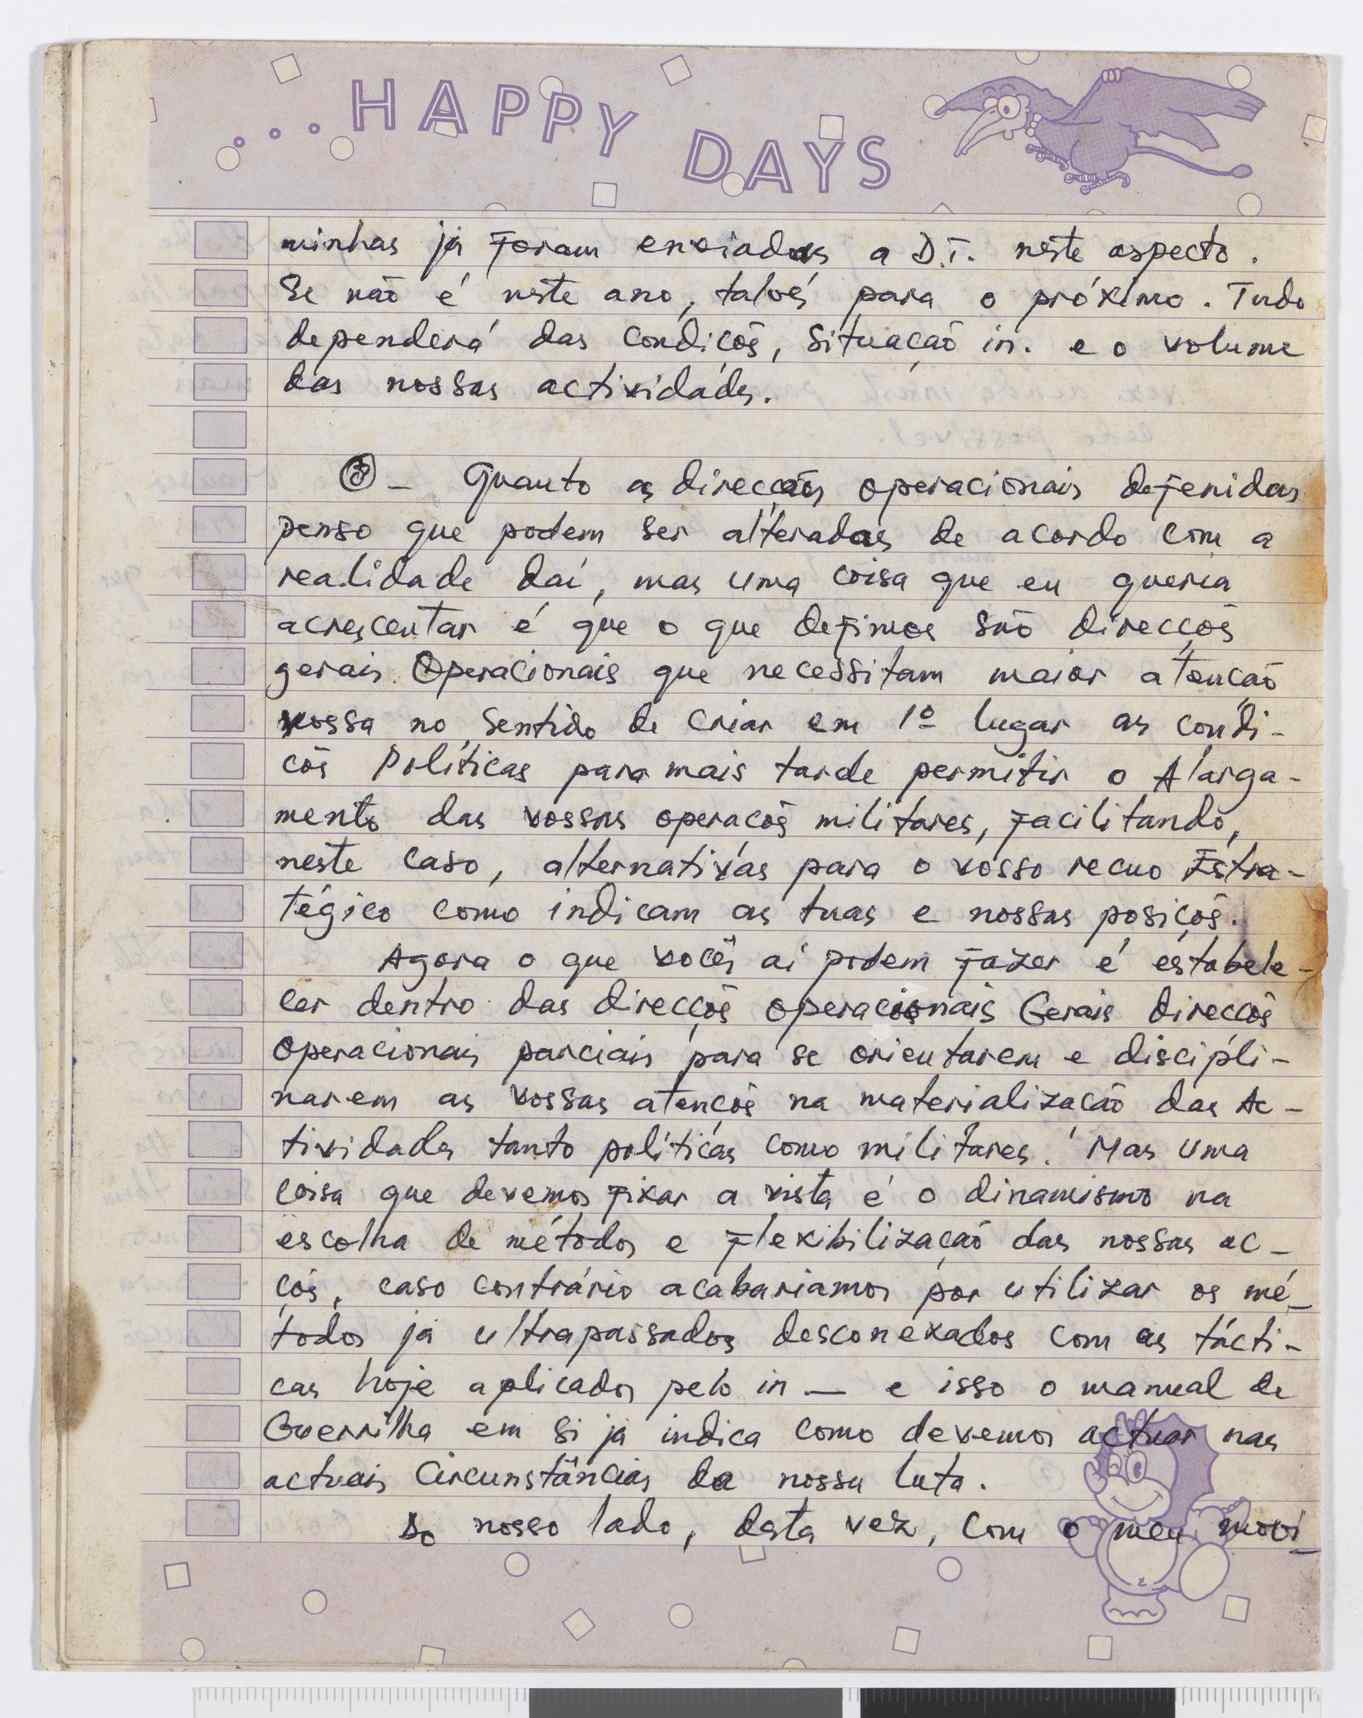 ...HAPPY DAYS
minhas já foram enviadas a D.T. neste aspecto.
Se não é neste ano, talvés para o próximo. Tudo
dependerá das condiçõs, situação in. e o volume
das nossas actividads.
⑧ - Quanto as direcçãos operacionais defenidas
penso que podem ser alteradas de acordo com a
realidade daí, mas uma coisa que eu queria
acrescentar é que o que defimos são direcçõs
gerais Operacionais que necessitam maior atenção
vossa no sentido de criar em 1º lugar as condi-
çõs Políticas para mais tarde permitir o Alarga-
mento das vossas operaçõs militares, facilitando,
neste caso, alternativas para o vosso recuo Estra-
tégico como indicam as tuas e nossas posiçõs.
Agora o que vocês aí podem fazer é estabele-
cer dentro das direcçõs operacionais Gerais direcçõs
Operacionais parciais para se orientarem e discipli-
narem as vossas atençõs na materialização das Ac-
tividads tanto políticas como militares. Mas uma
coisa que devemos fixar a vista é o dinamismo na
escolha de métodos e flexibilização das nossas ac-
çõs, caso contrário acabariamos por utilizar os mé-
todos já ultrapassados desconexados com as tácti-
cas hoje aplicados pelo in — e isso o manual de
Guerrilha em si já indica como devemos actuar nas
actuais Circunstâncias da nossa luta.
Do nosso lado, desta vez, com o meu movi-